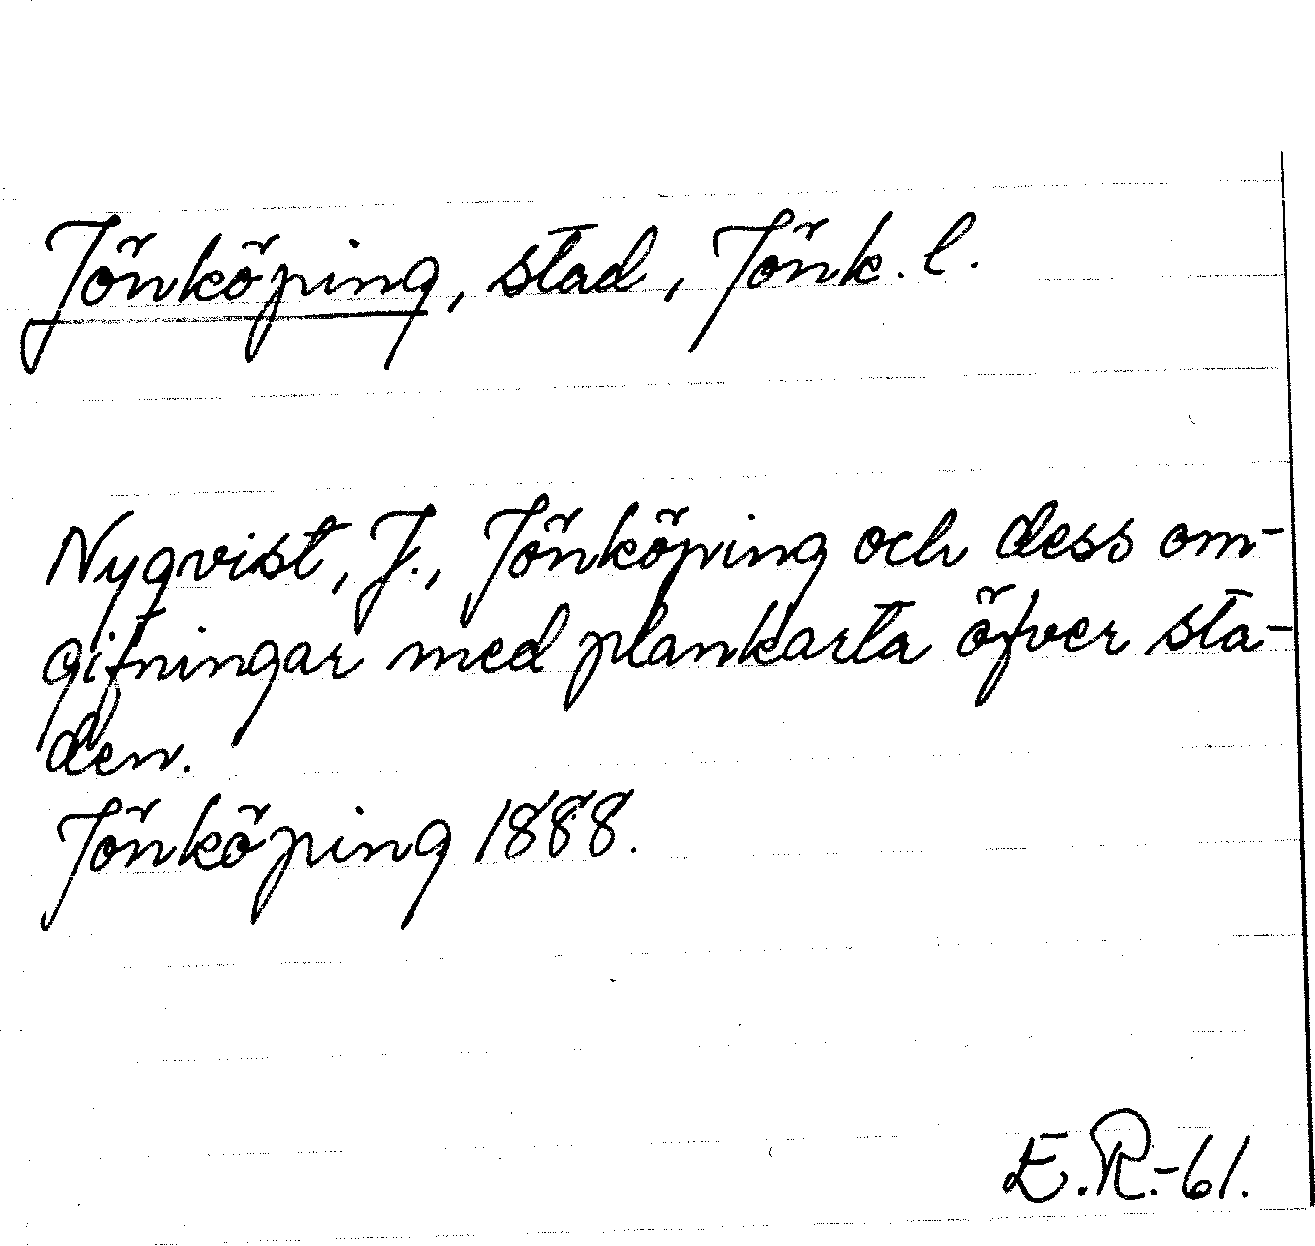 Jönköping, stad, Jönk. l.
Nyqvist, J., Jönköping och dess om-
gifningar med plankarta öfver sta-
den.
Jönköping 1888.
E.R.-61.